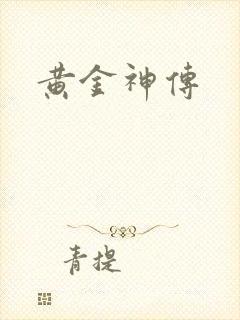 黄金神傳
青提